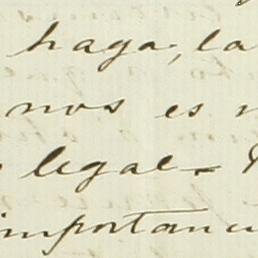 haga, la
nos es
legal -
importanci